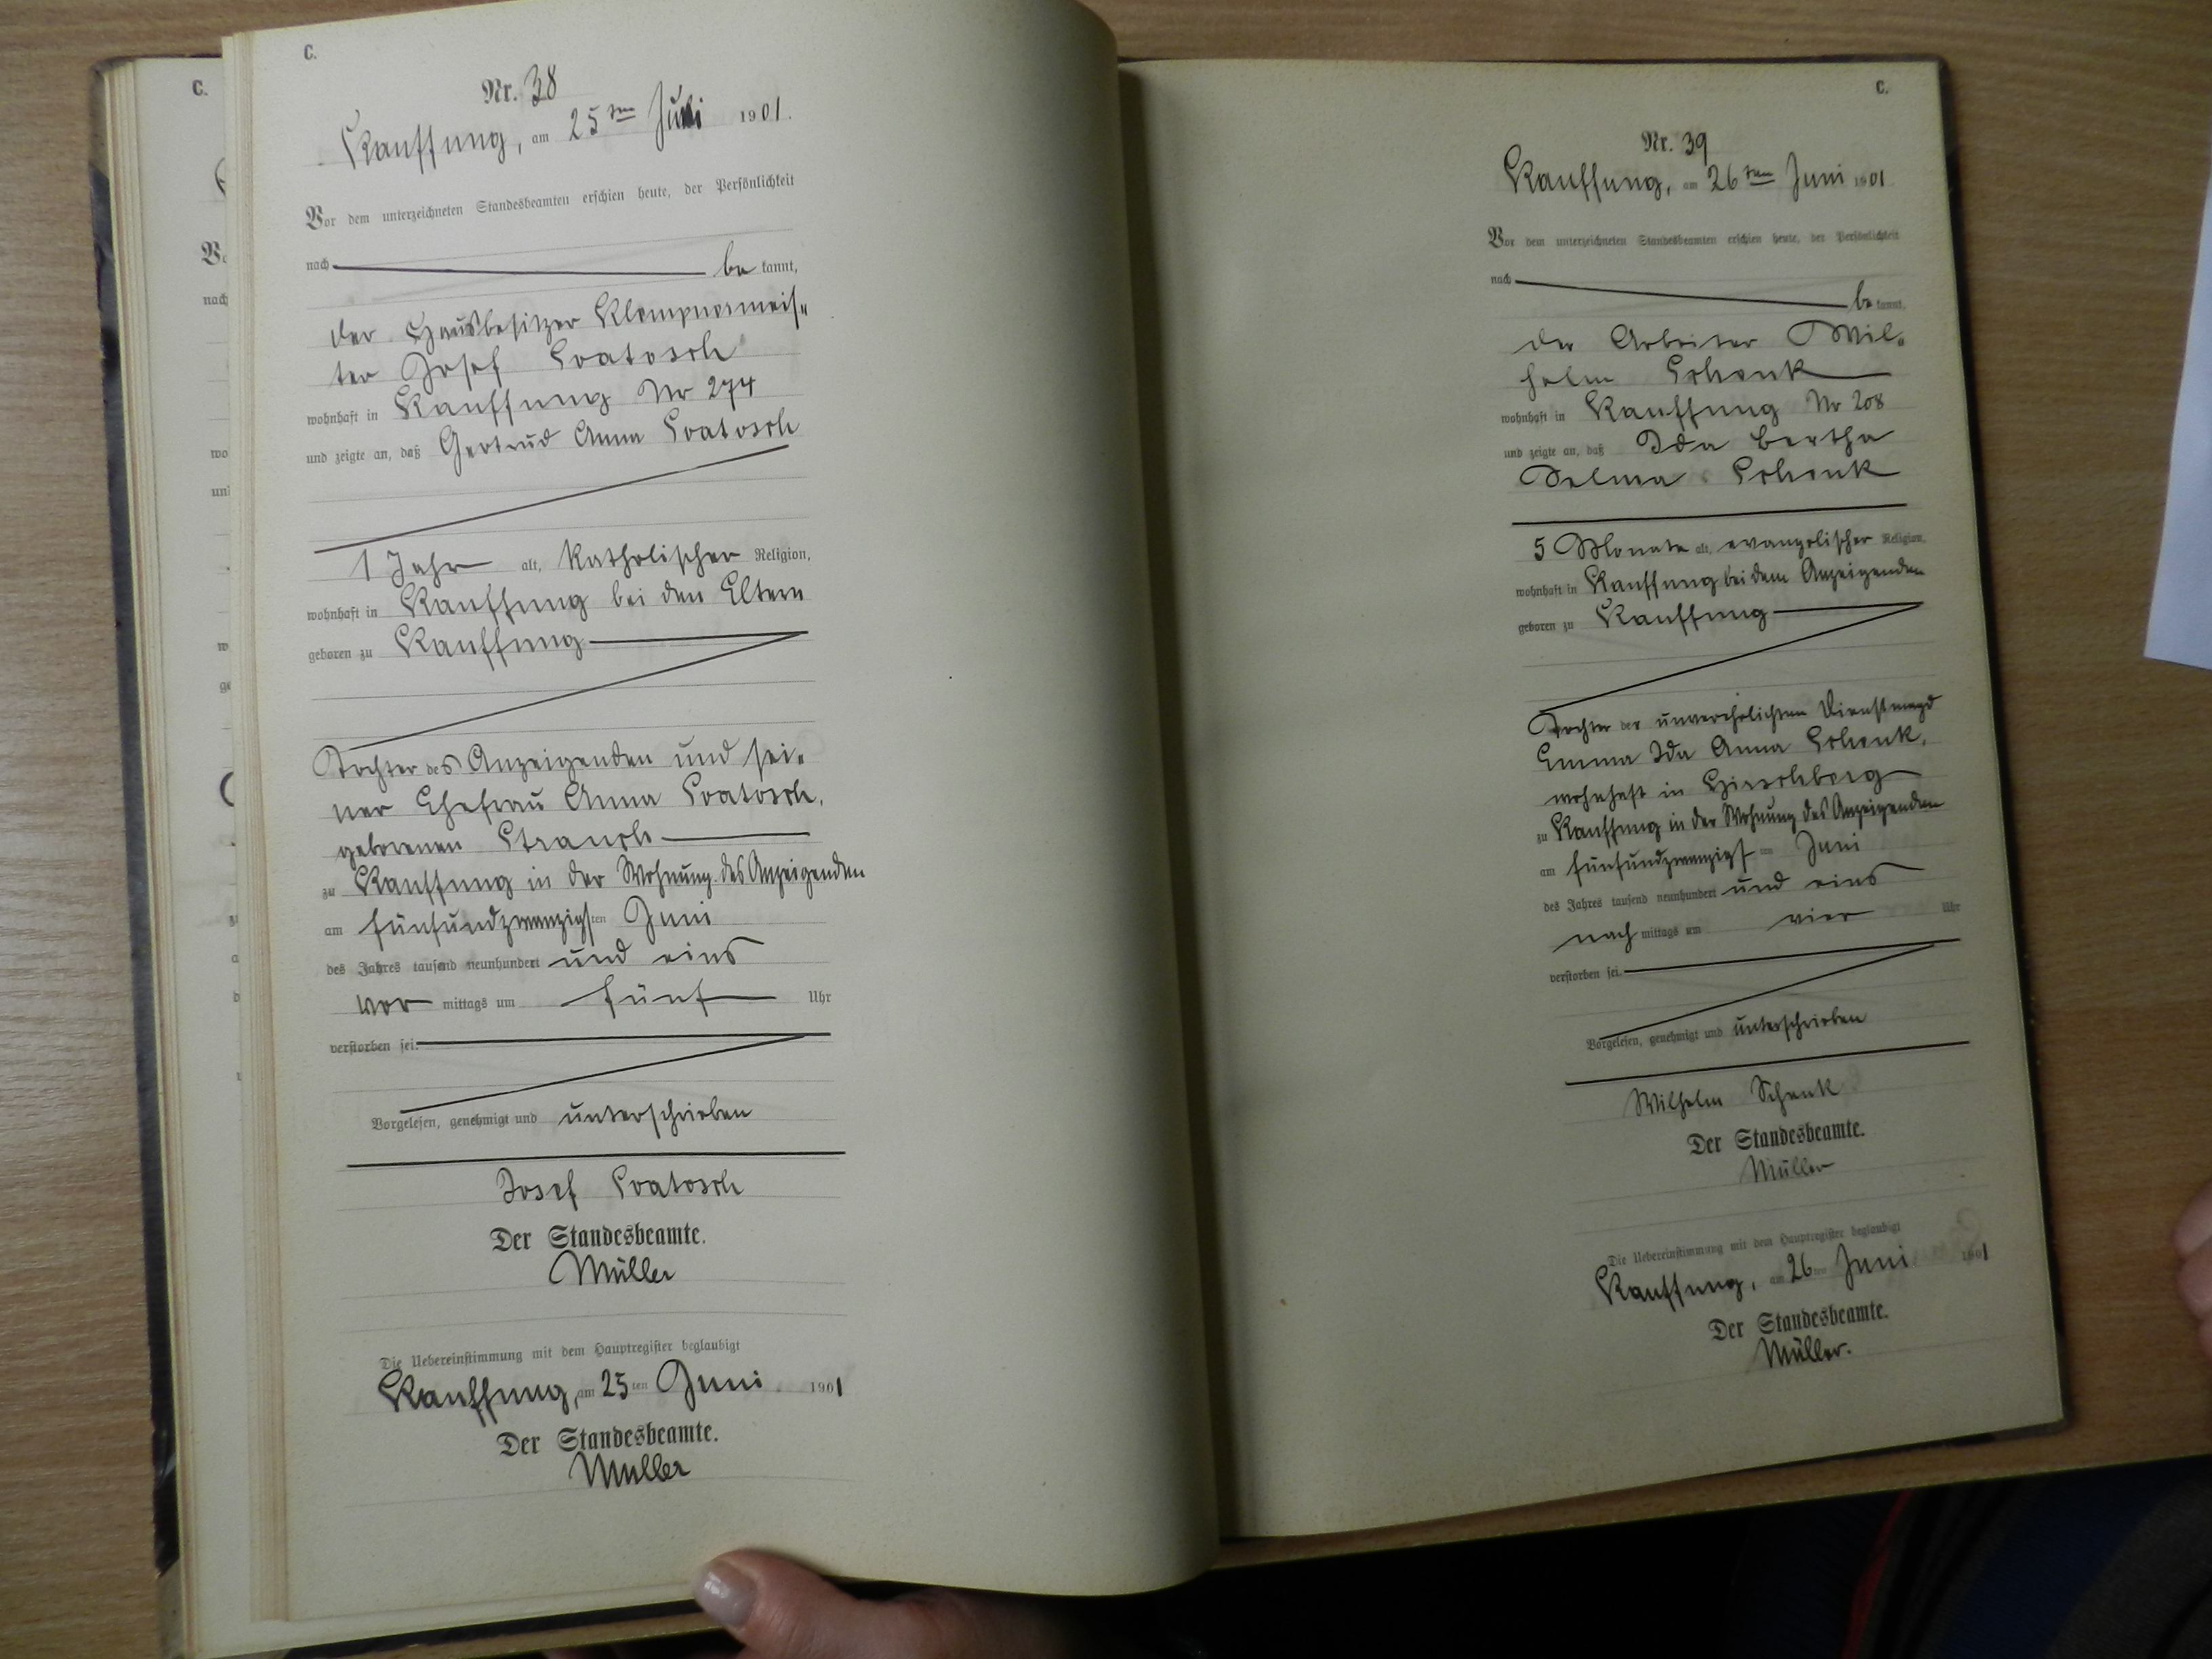 C.
Nr. 38
Kauffung, am 25ten Juni 1901.
Vor dem unterzeichneten Standesbeamten erschien heute, der Persönlichkeit
nach be kannt,
der Hausbesitzer Klempnermeis-
ter Josef Svatosch
wohnhaft in Kauffung Nr 274
und zeigte an, daß Gertrud Anna Svatosch
1 Jahr alt, katholischer Religion,
wohnhaft in Kauffung bei den Eltern
geboren zu Kauffung
Tochter des Anzeigenden und sei-
ner Ehefrau Anna Svatosch,
geborenen Strauch
zu Kauffung in der Wohnung des Anzeigenden
am fünfundzwanzigsten Juni
des Jahres tausend neunhundert und eins
vor mittags um fünf Uhr
verstorben sei.
Vorgelesen, genehmigt und unterschrieben
Josef Svatosch
Der Standesbeamte.
Müller
Die Uebereinstimmung mit dem Hauptregister beglaubigt
Kauffung, am 25ten Juni 1901
Der Standesbeamte.
Müller
C.
Nr. 39
Kauffung, am 26ten Juni 1901
Vor dem unterzeichneten Standesbeamten erschien heute, der Persönlichkeit
nach be kannt,
der Arbeiter Wil-
helm Schenk
wohnhaft in Kauffung Nr 208
und zeigte an, daß Ida Bertha
Selma Schenk
5 Monate alt, evangelischer Religion,
wohnhaft in Kauffung bei dem Anzeigenden
geboren zu Kauffung
Tochter der unverehelichten Dienstmagd
Emma Ida Anna Schenk,
wohnhaft in Hirschberg
zu Kauffung in der Wohnung des Anzeigenden
am fünfundzwanzigsten Juni
des Jahres tausend neunhundert und eins
nach mittags um vier Uhr
verstorben sei.
Vorgelesen, genehmigt und unterschrieben
Wilhelm Schenk
Der Standesbeamte.
Müller
Die Uebereinstimmung mit dem Hauptregister beglaubigt
Kauffung, am 26ten Juni 1901
Der Standesbeamte.
Müller.